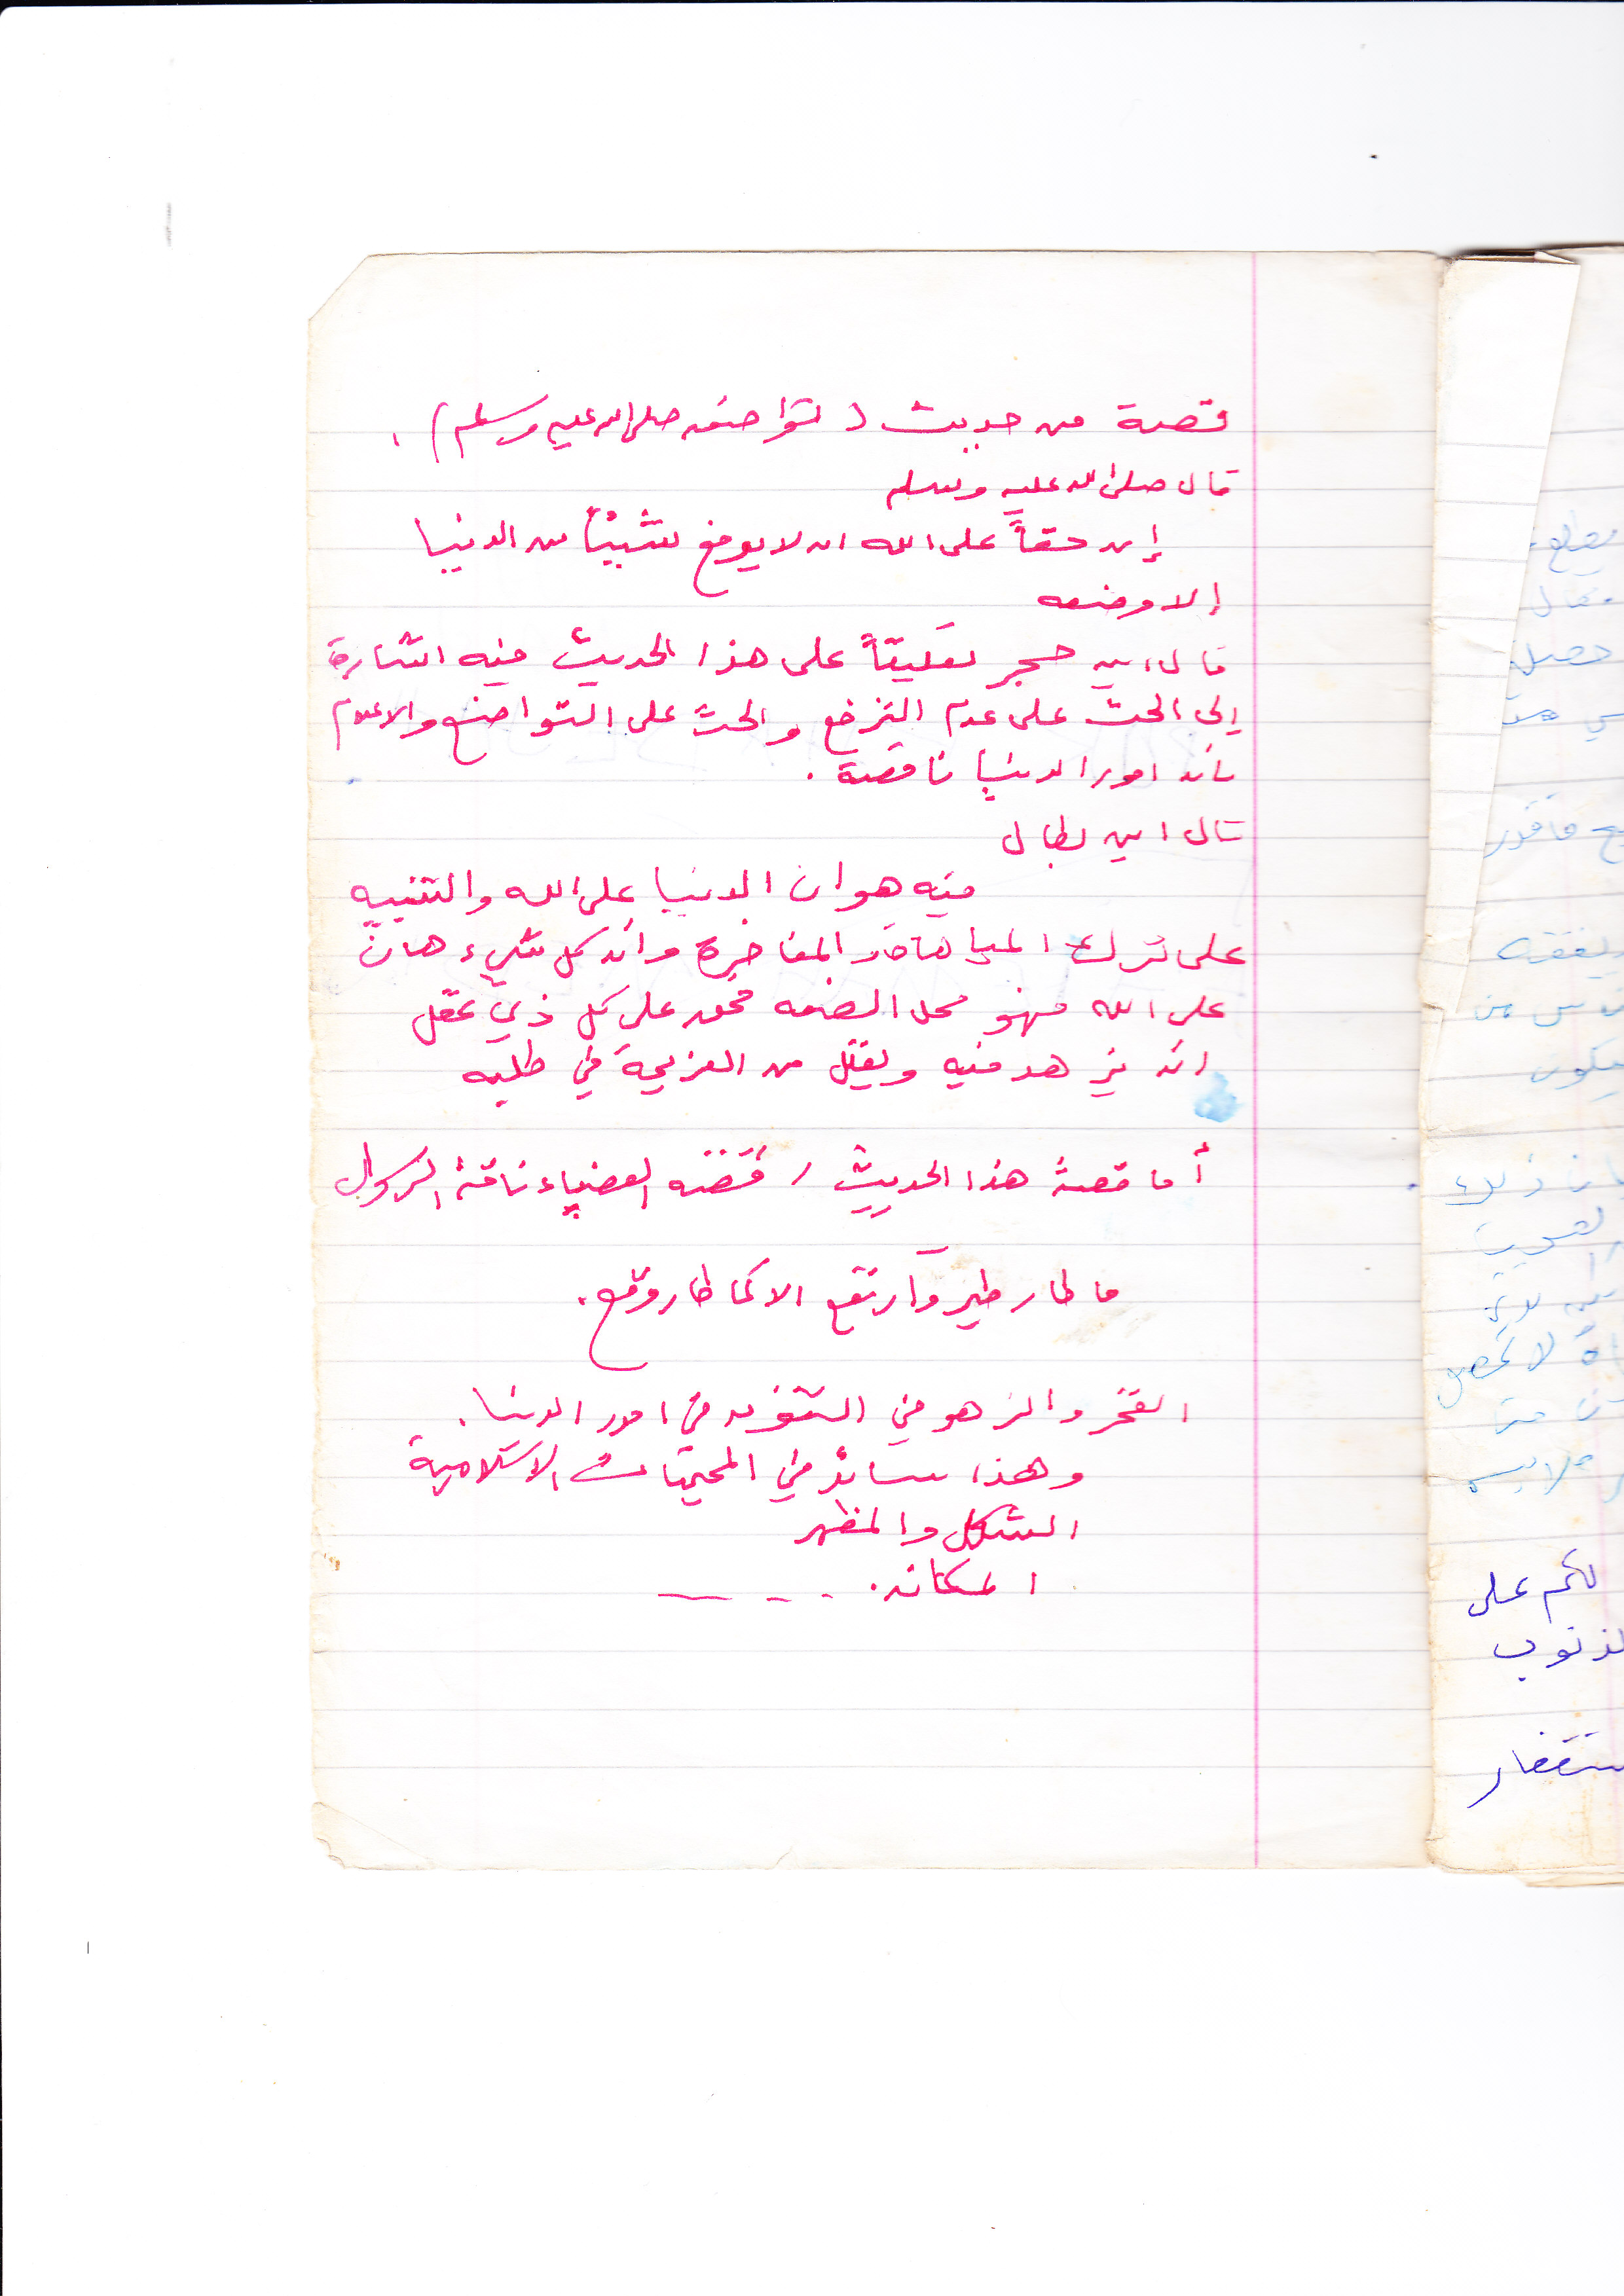 قصة من حديث ( تواضعه صلى الله عليه وسلم ) .
قال صلى الله عليه وسلم
إن حقاً على الله ان لا يرفع شيئاً من الدنيا
إلا وضعه
قال ابن حجر تعليقاً على هذا الحديث فيه اشارة
إلى الحث على عدم الترفع والحث على التواضع والاعلام
بأن امور الدنيا ناقصة .
قال ابن بطال
فيه هوان الدنيا على الله والتنبيه
على ترك المباهاة والمفاخرة وان كل شيء هان
على الله فهو محل الضعه فحق على كل ذي عقل
ان يزهد فيه ويقلل من العزيمة في طلبه
أما قصة هذا الحديث / قصة العضباء ناقة الرسول
ما طار طير وارتفع الا كما طار وقع .
الفخر والزهو في امور الدنيا .
وهذا سائد في المجتمعات الاسلامية
الشكل والمظهر
المكانه . - - - —
لكم على